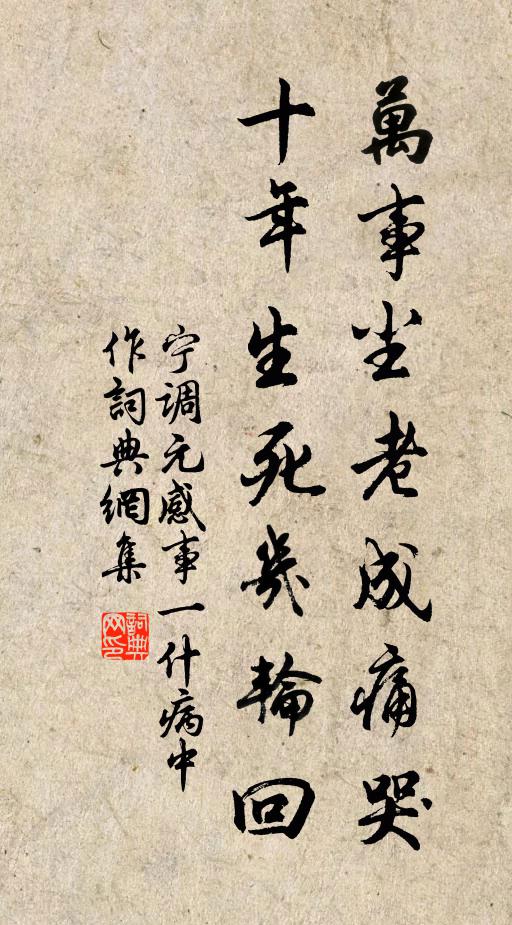 萬事尘老成痛哭
十年生死幾輪回
宁调元感事一什病中
作詞典網集
詞典网印